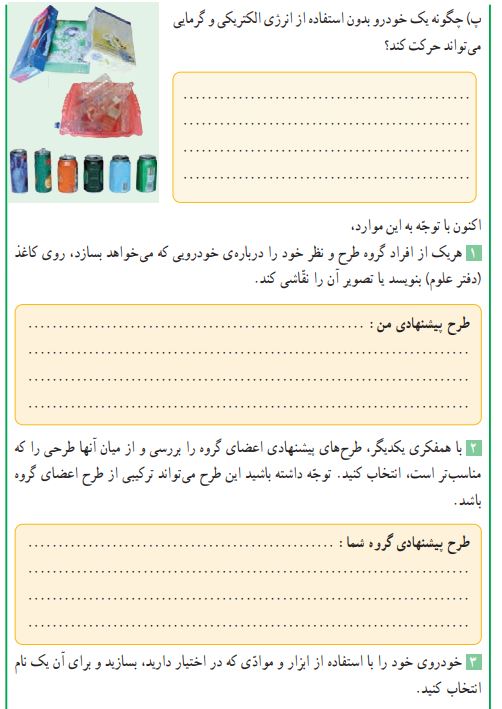 پ) چگونه یک خودرو بدون استفاده از انرژی الکتریکی و گرمایی
می‌تواند حرکت کند؟
................................................
................................................
................................................
................................................
اکنون با توجّه به این موارد،
۱ هریک از افراد گروه طرح و نظر خود را درباره‌ی خودرویی که می‌خواهد بسازد، روی کاغذ
(دفتر علوم) بنویسد یا تصویر آن را نقّاشی کند.
طرح پیشنهادی من : ................................................
................................................................
................................................................
................................................................
۲ با همفکری یکدیگر، طرح‌های پیشنهادی اعضای گروه را بررسی و از میان آنها طرحی را که
مناسب‌تر است، انتخاب کنید. توجّه داشته باشید این طرح می‌تواند ترکیبی از طرح اعضای گروه
باشد.
طرح پیشنهادی گروه شما : ............................................
................................................................
................................................................
................................................................
۳ خودروی خود را با استفاده از ابزار و موادّی که در اختیار دارید، بسازید و برای آن یک نام
انتخاب کنید.